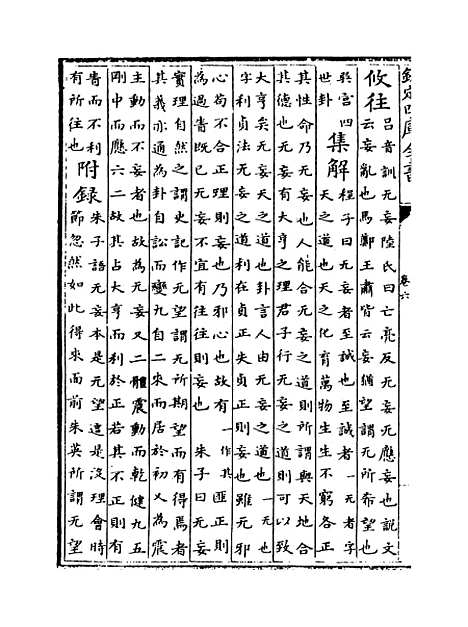 欽定四庫全書
卷六
攸往
吕音訓无妄陸氏曰亡亮反无妄无應妄也說文
云妄亂也馬鄭王肅皆云妄猶望謂无所希望也
巽宫四
世卦
集解
程子曰无妄者至誠也至誠者一无者字
天之道也天之化育萬物生生不窮各正
其性命乃无妄也人能合无妄之道則所謂與天地合
其德也无妄有大亨之理君子行无妄之道則可以致
大亨矣无妄天之道也卦言人由无妄之道也一无也
字利貞法无妄之道利在貞正失貞正則妄也雖无邪
心苟不合正理則妄也乃邪心也故有一作其匪正則
為過眚既已无妄不宜有往往則妄也 朱子曰无妄
實理自然之謂史記作无望謂无所期望而有得焉者
其義亦通為卦自訟而變九自二來而居於初又為震
主動而不妄者也故為无妄又二體震動而乾健九五
剛中而應六二故其占大亨而利於正若其不正則有
眚而不利
有所往也
附録
朱子語无妄本是无望這是沒理會時
節忽然如此得來面前朱英所謂无望